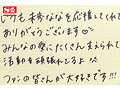 いつも未歩ななを応援してくれて
ありがとうございます♡
みんなの愛にたくさん支えられて
活動を頑張れてるよ
ファンの皆さんが大好きです!!!